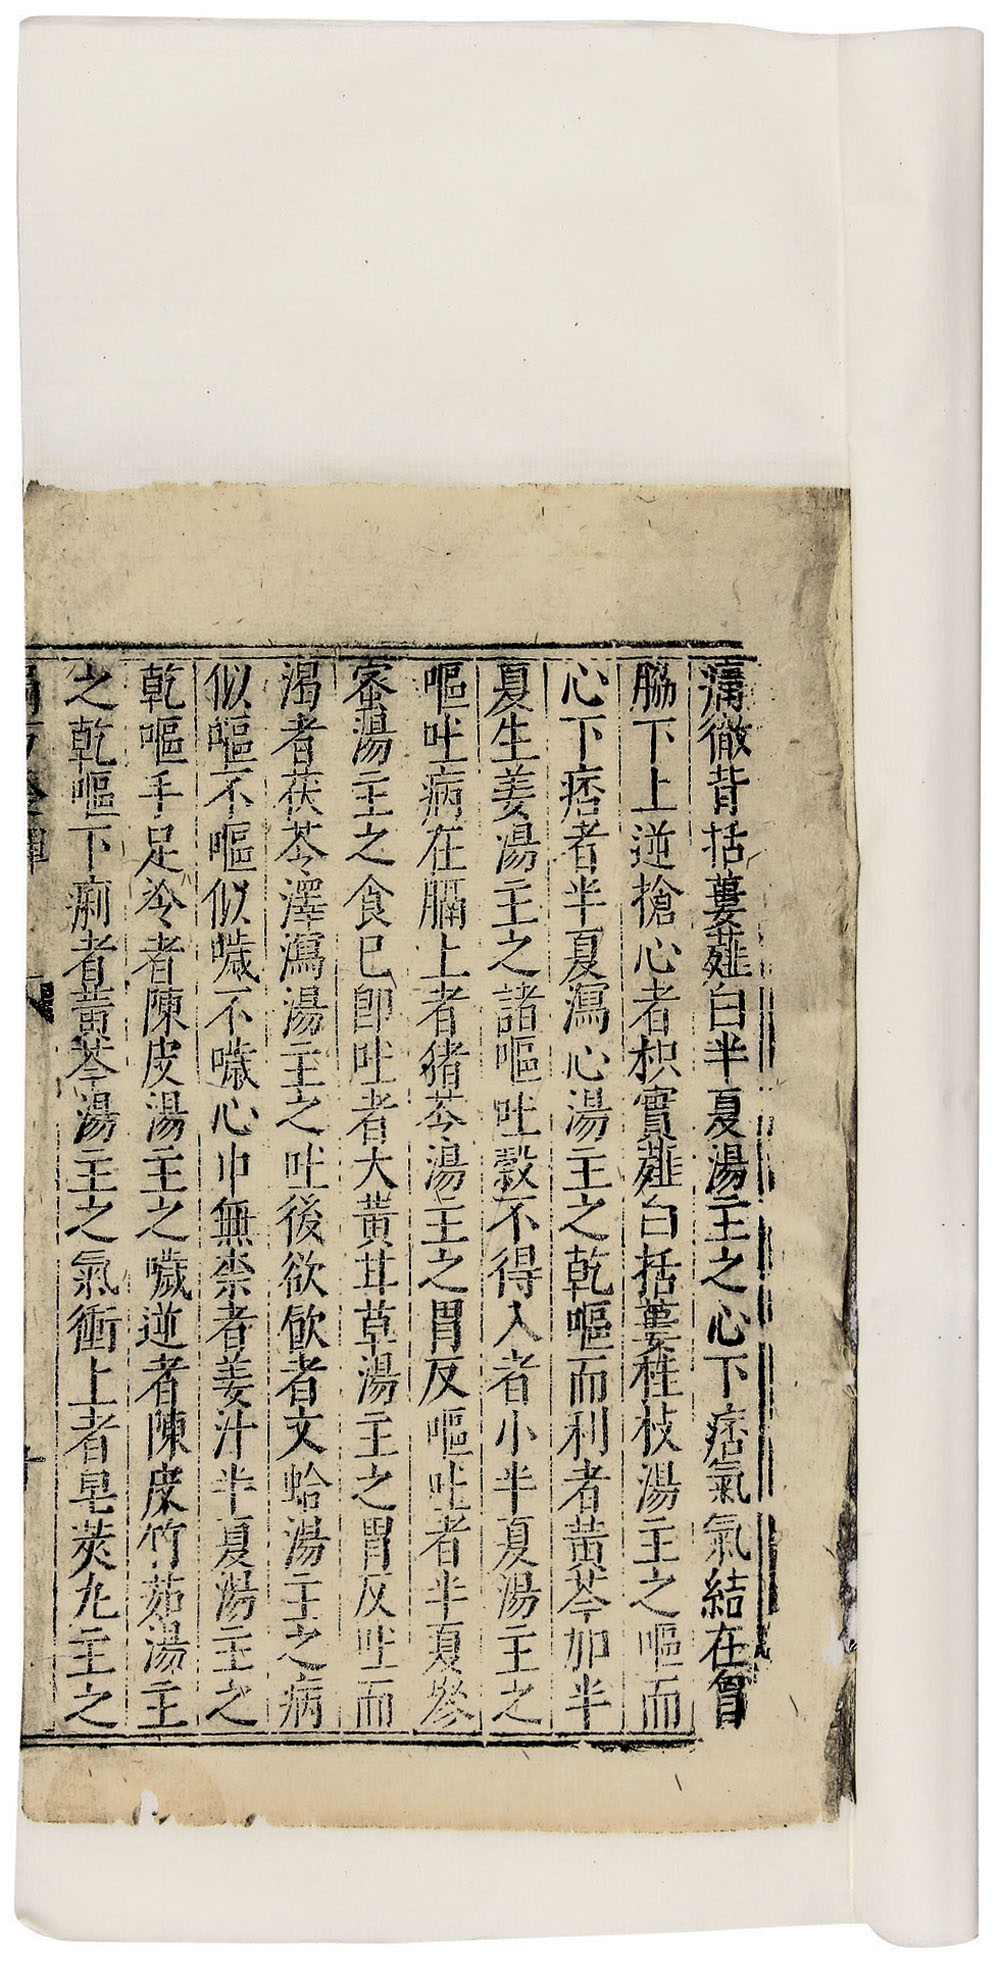 痛徹背括蔞薤白半夏湯主之心下痞氣氣結在胷
脇下上逆搶心者枳實薤白括蔞桂枝湯主之嘔而
心下痞者半夏瀉心湯主之乾嘔而利者黃芩加半
夏生姜湯主之諸嘔吐穀不得入者小半夏湯主之
嘔吐病在膈上者猪苓湯主之胃反嘔吐者半夏參
蜜湯主之食已卽吐者大黃甘草湯主之胃反吐而
渴者茯苓澤瀉湯主之吐後欲飮者文蛤湯主之病
似嘔不嘔似噦不噦心中無柰者姜汁半夏湯主之
乾嘔手足冷者陳皮湯主之噦逆者陳皮竹茹湯主
之乾嘔下痢者黃芩湯主之氣衝上者皂莢丸主之